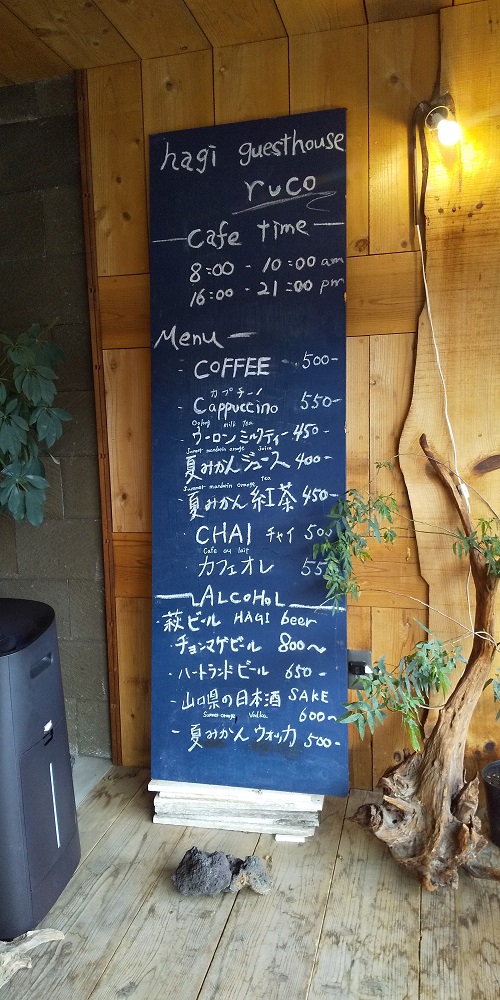 hagi guesthouse
ruco
Cafe time
8:00 - 10:00 am
16:00 - 21:00 pm
Menu
・COFFEE 500-
カプチーノ
・Cappuccino 550-
Oolong milk tea
・ウーロンミルクティー 450-
Summer mandarin orange Juice
・夏みかんジュース 400-
Summer mandarin orange Tea
・夏みかん紅茶 450-
・CHAI チャイ
Cafe au lait
・カフェオレ
ALCOHOL
・萩ビール HAGI beer
チョンマゲビール 800〜
・ハートランドビール 650-
・山口県の日本酒 SAKE
600〜
Summer orange Vodka
・夏みかんウォッカ 500-